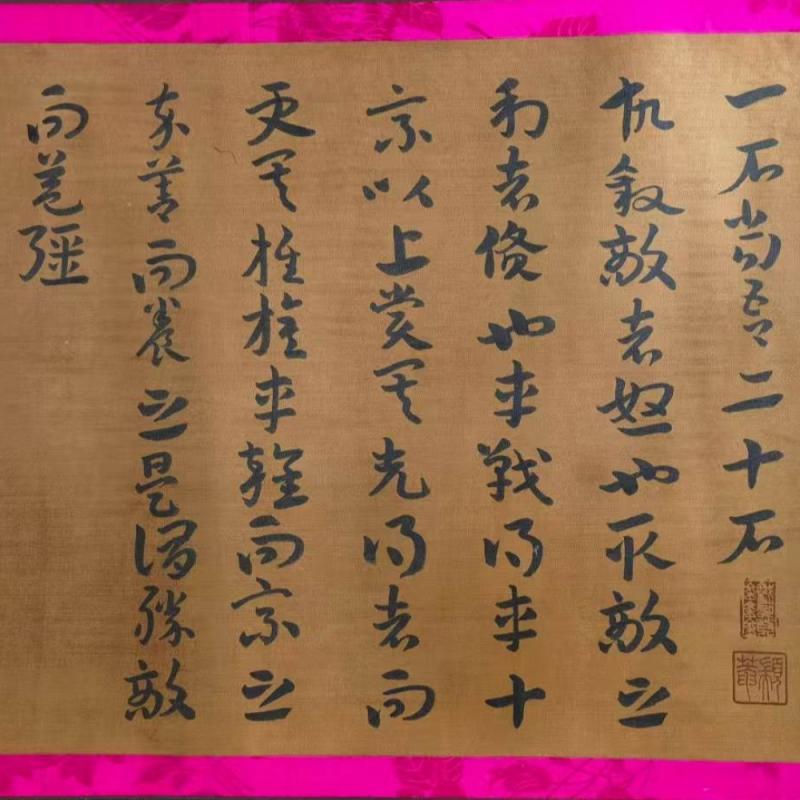 一石當吾二十石
故殺敵者怒也取敵之
利者貨也車戰得車十
乘以上賞其先得者而
更其旌旗車雜而乘之
卒善而養之是謂勝敵
而益彊